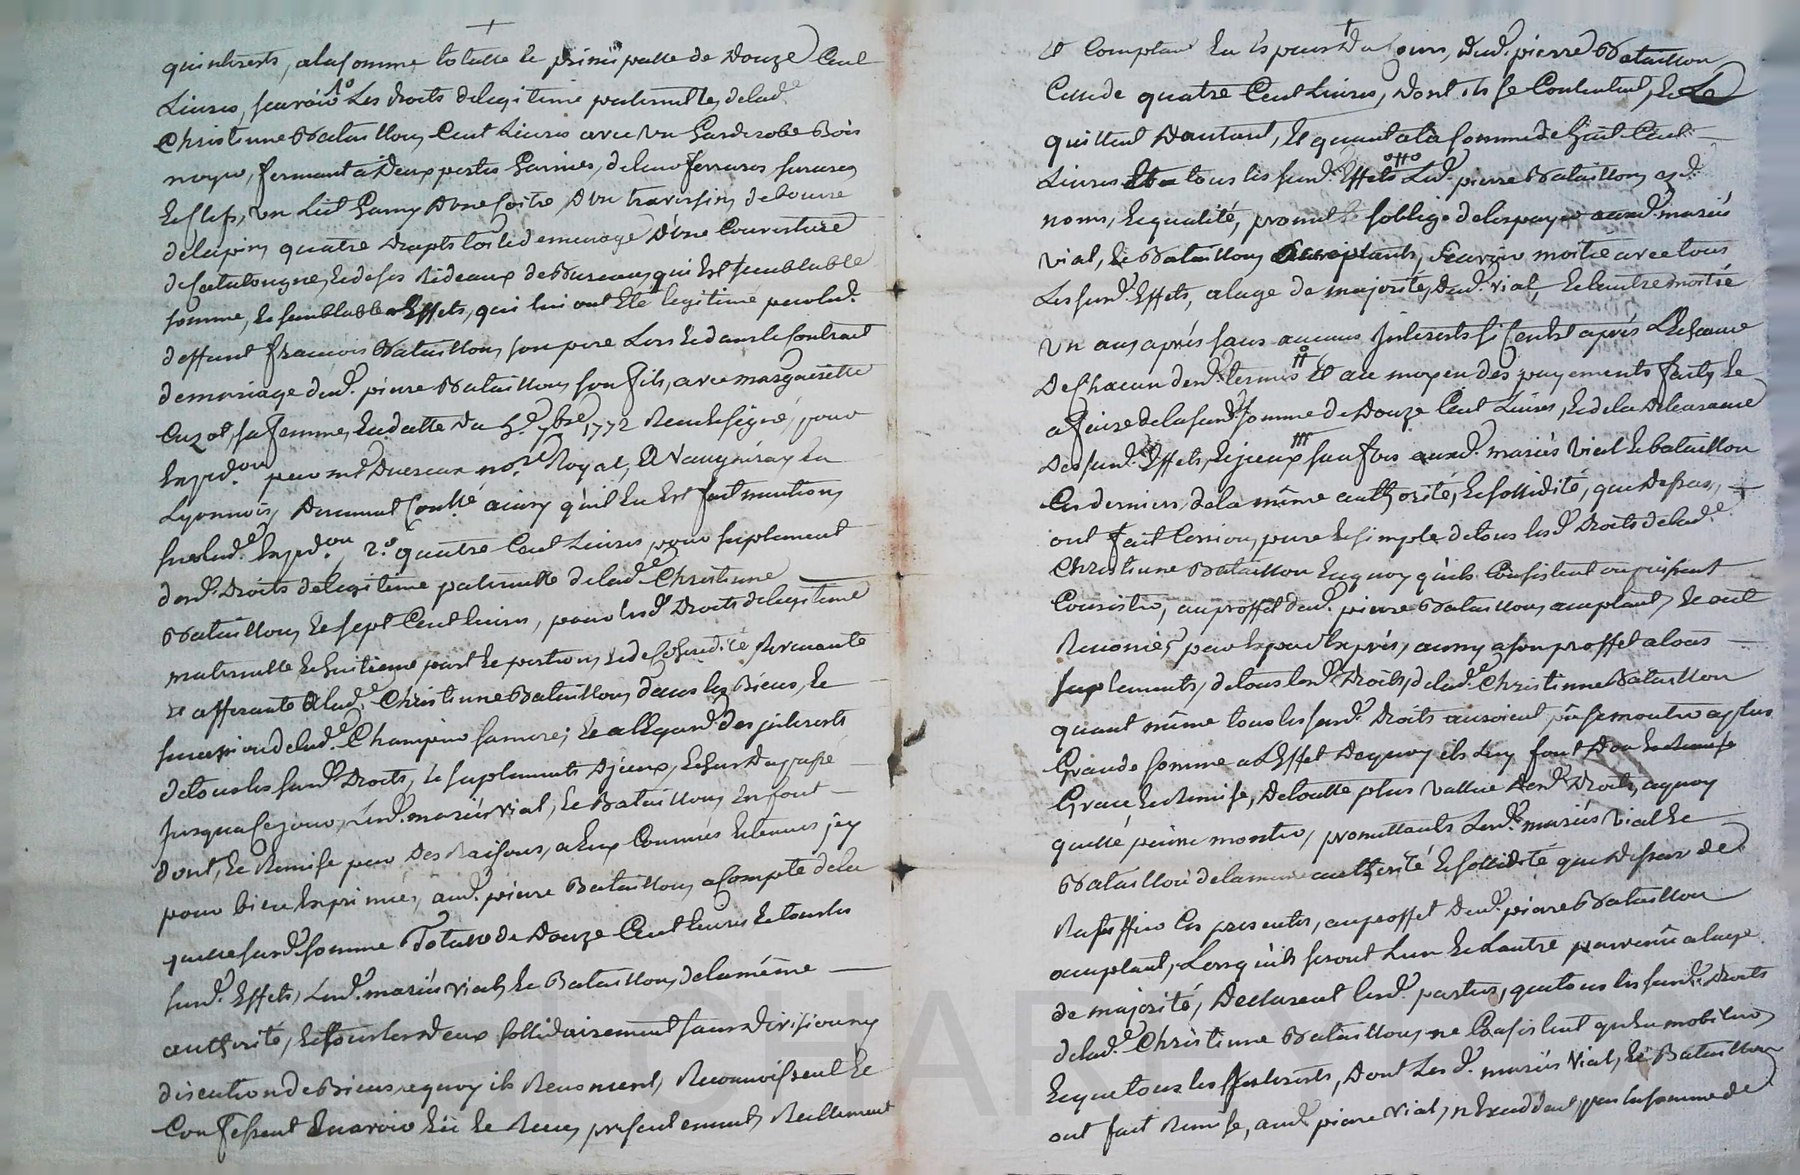 qu'interests, a la somme totalle et principalle de Douze Cent
Livres, scavoir 1° Les droits de legitime paternelle, de lad.e
Christinne Bataillon, Cent Livres avec un Garderobe Bois
noyer, fermant a Deux portes Garnies, de leur ferrures serrures
et clefs, un Lit Garny D'une Coitre, D'un traversin de bourre
de lapin, quatre Drapts toile de menage D'une Couverture
de Catalongne, et de ses Rideaux de Bureau, qui Est semblable
somme, et semblables Effets, qui lui ont Eté legitimé par led.
deffunt francois Bataillon, son pere Lors et dans le Contract
de mariage dud. pierre Bataillon son fils, avec margueritte
sa femme, En datte Du 5.e 7bre 1772 Reçu et signé, pour
Exped.on par m.e no.re Royal, A Vaugneray En
Lyonnois, Duement Conllé ainsy qu'il En Est fait mention,
sur lad.e Exped.on, 2.° quatre Cent Livres pour suplement
desd. Droits de legitime paternelle de lad.e Christinne
Bataillon, Et sept Cent livres, pour lesd. Droits de legitime
maternelle Et huitieme part et portion, Revenante
et afferante A lad.e Christinne Bataillon, dans les Biens, Et
succession de lad.e Champin sa mere; Et a l'Egard Des interests
de tous les susd. Droits, et suplements Djeux, Et sur Du passé
jusqua Ce jour, Lesd. mariés vial, Et Bataillon En font
dont, Et Remise pour Des Raisons, a Eux Connües Et tenues jcy
pour bien Exprimées, aud. pierre Bataillon a Compte de la
quelle susd. somme Totalle de Douze Cent livres Et tous les
susd. Effets, Lesd. mariés vial, Et Bataillon, de la même
authorité, Et tous les deux sollidairement sans Division ny
discution de Biens, a quoy ils Renoncent, Reconnoissent Et
Confessent En avoir Eü Et Reçu presentement Reellement
Et Comptant En Especes Du Cours, Dud. pierre Bataillon
Celle de quatre Cent Livres, Dont ils se Contentent, Et Le
quittent D'autant, Et quant a la somme de huit Cent
Livres Et a tous les susd. Effets Led. pierre Bataillon, esd.
noms, Et qualité, promet Et s'oblige de les payer auxd. mariés
vial, Et Bataillon acceptants, Scavoir moitié avec tous
Les susd. Effets, a l'age de majorité, Dud. vial, Et l'autre moitié
un an après sans aucuns jnterests si Cen'est après L'Echeance
De Chacun desd. termes Et au moyen des payements faits, Et
a faire de la susd. somme de Douze Cent Livres, Et de la Delivrance
Des susd. Effets, auxd. mariés vial Et bataillon
Ces derniers de la même authorité, Et sollidité, que Dessus,
ont fait Cession, pure Et simple de tous lesd. Droits de lad.e
Christinne Bataillon En quoy qu'ils Consistent ou puissent
Consister, au proffit dud. pierre Bataillon, acceptant, Et ont
Renoncé, par Exprès, aussy a son proffet a tous
suplements, de tous lesd. Droits, de lad.e Christinne Bataillon
quant même tous les susd. Droits auroient pû se monter a plus
Grande somme a L'Effet Dequoy ils Luy font Don Et Remise
Grace Et Remise, De toutte plus vallüe Desd. Droits, a quoy
quelle puisse monter, promettants Lesd. mariés vial Et
Bataillon de la même authorité Et sollidité que Dessus de
Rattiffier Ces presentes, au proffet Dud. pierre Bataillon
acceptant, Lorsqu'ils seront L'un Et L'autre parvenû a l'age
de majorité, Declarent Lesd. parties, que tous les susd. Droits
de lad.e Christinne Bataillon, ne Consistent qu'en mobilier,
Et que tous les jnterests, Dont Lesd. mariés vial, Et Bataillon
ont fait Remise, aud. pierre vial, n'Exceddent pas la somme de